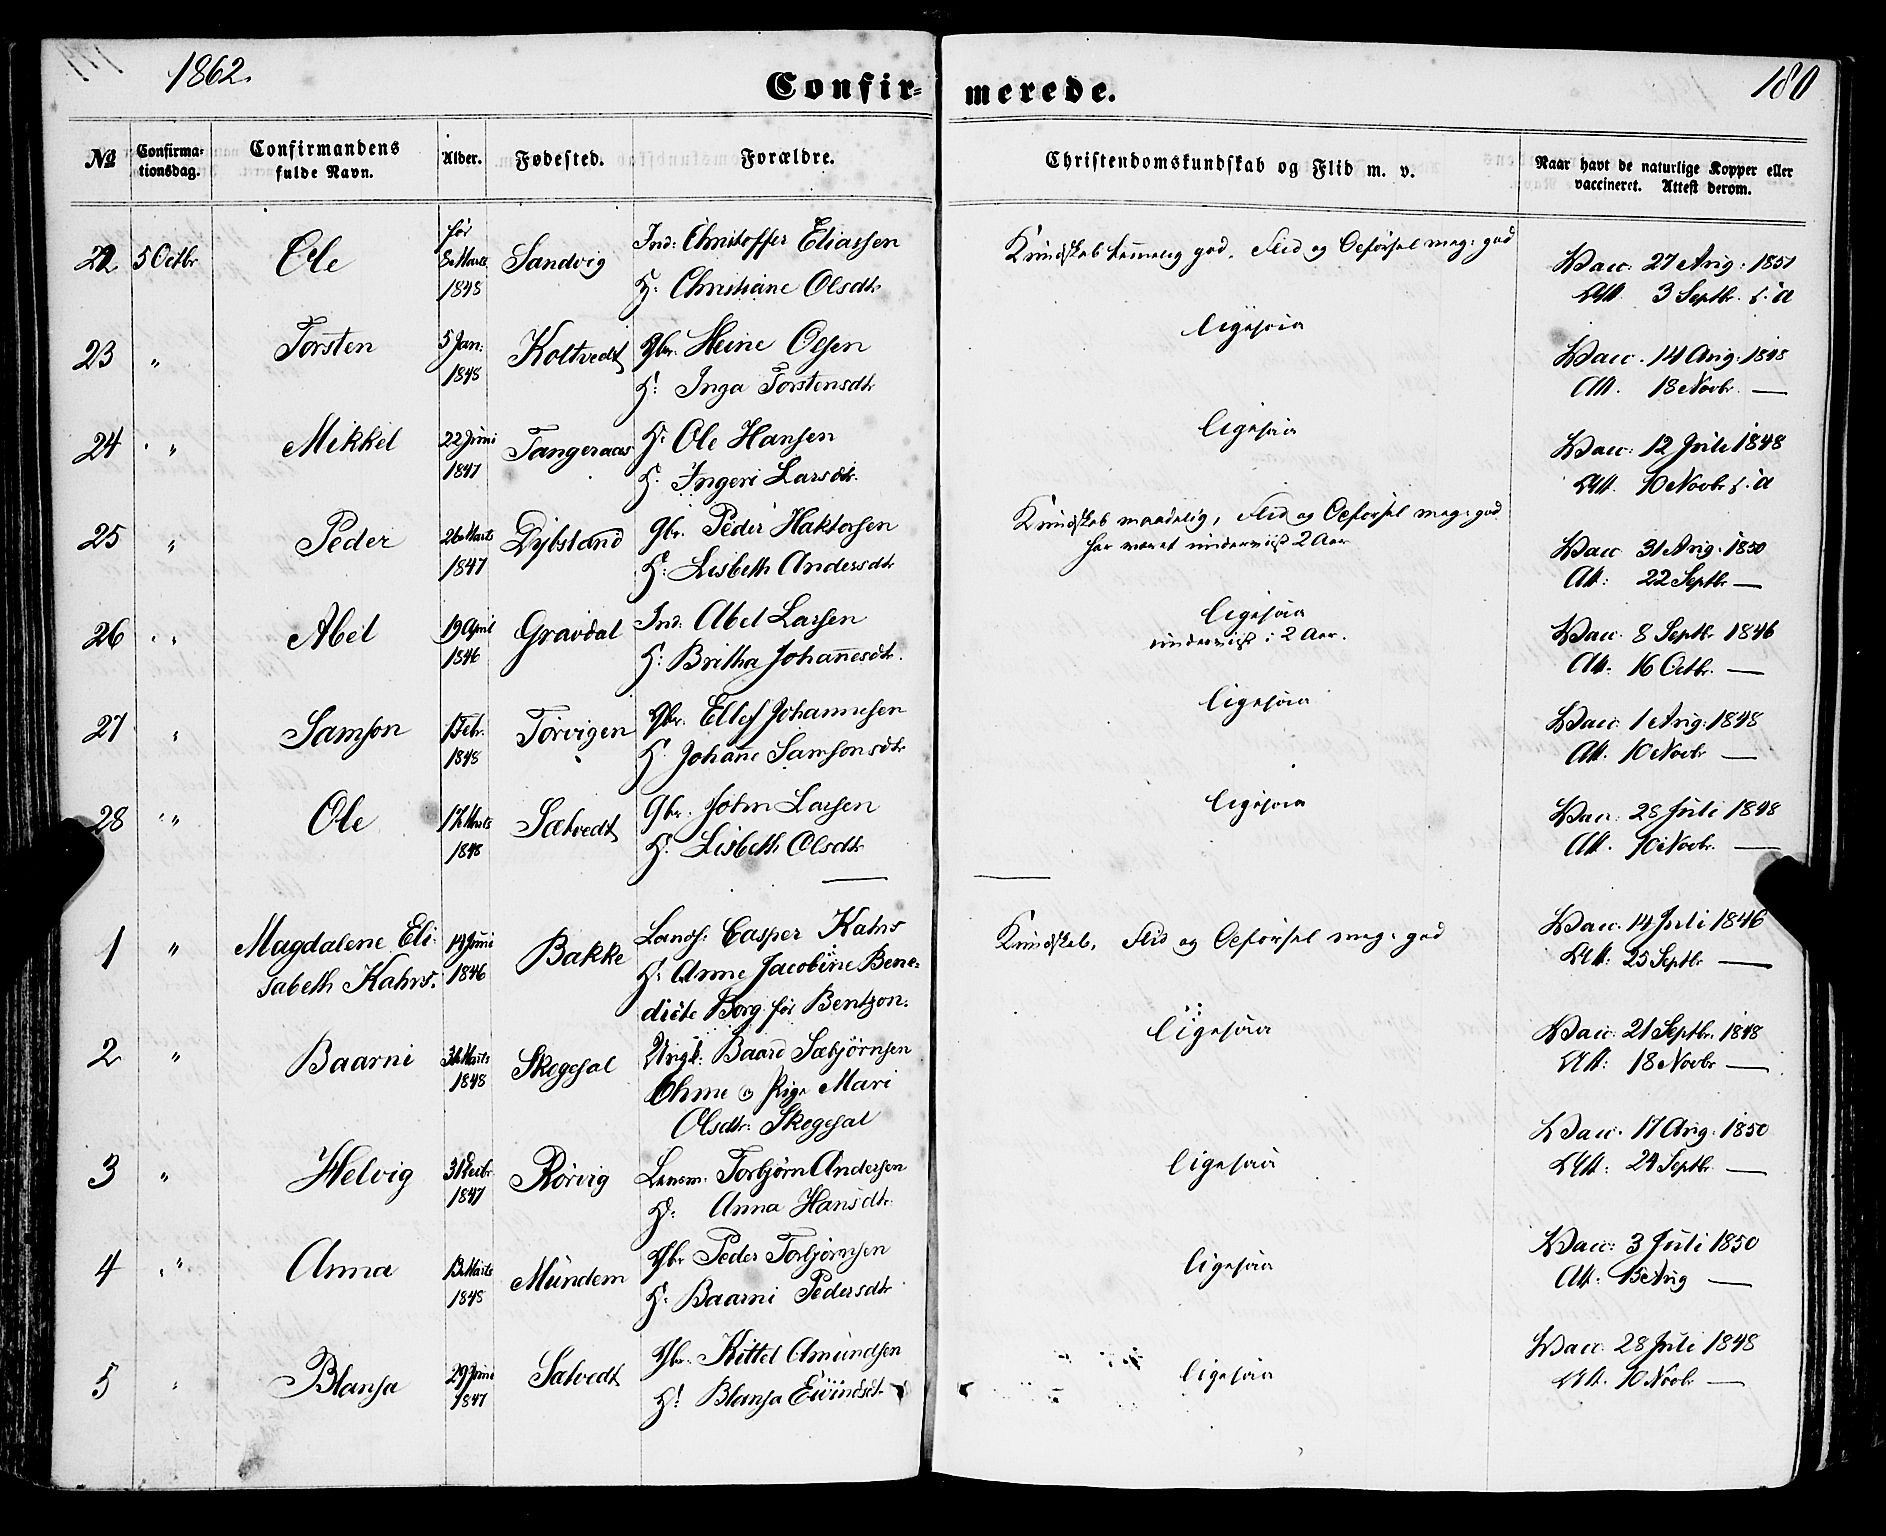 1862.
180
Confir- merede.
№
Confirma-
tionsdag.
Confirmandens
fulde Navn.
Alder.
Fødested.
Forældre.
Christendomskundskab og Flid m. v.
Naar havt de naturlige Kopper eller
vaccineret. Attest derom.
22 5 Octbr Ole før 8 Marts 1848 Sandvig Ind: Christoffer Eliassen
H: Christiane Olsdtr
Kundskab temmelig god. Flid og Opførsel meg: god
Vacc: 27 Aug: 1851
Att. 3 Septbr. s. a
23 " Torsten 5 Jan: 1848 Koltvedt Gbr. Heine Olsen
H: Inga Torstensdtr
ligesaa
Vacc. 14 Aug: 1848
Att. 18 Novbr. —
24 " Mikkel 22 Juni 1847 Tangeraas H: Ole Hansen
H: Ingeri Larsdtr.
ligesaa
Vacc: 12 Juli 1848
Att. 10 Novbr s. a
25 " Peder 26 Marts 1847 Dybsland Gbr. Peder Haktorsen
H: Lisbeth Andersdtr
Kundskab maadelig, Flid og Opførsel meg: god
har været underviist 2 Aar
Vacc 31 Aug: 1850
Att: 22 Septbr —
26 " Abel 19 April 1846 Gravdal Ind. Abel Larsen
H: Britha Johannesdtr.
ligesaa
underviist i 2 Aar.
Vacc. 8 Septbr 1846
Att. 16 Octbr. —
27 " Samson 1 Febr. 1848 Tørvigen Gbr. Ellef Johannesen
H. Johanne Samsonsdtr
ligesaa
Vacc. 1 Aug: 1848
Att. 10 Novbr —
28 " Ole 17 Marts 1848 Sætvedt Gbr. John Larsen
H. Lisbeth Olsdtr
ligesaa
Vacc: 28 Juli 1848
Att. 10 Novbr. —
1 " Magdalene Eli-
sabeth Kahrs. 14 Juni 1846 Bakke Landh: Casper Kahrs
H: Anne Jacobine Bene-
dicte Borg før Bentzon.
Kundskab, Flid og Opførsel meg: god
Vacc. 14 Juli 1846
Att: 25 Septbr —
2 " Baarni 31 Marts 1848 Skogesal Ungk: Baard Sæbjørnsen
Ohme og Pige Mari
Olsdtr: Skogesal
ligesaa
Vacc: 21 Septbr. 1848
Att: 18 Novbr —
3 " Helvig 31 Decbr. 1847 Rørvig Lensm. Torbjørn Andersen
H: Anna Hansdtr
ligesaa
Vacc. 17 Aug: 1850
Att: 24 Septbr —
4 " Anna 13 Marts 1848 Mundem Gbr Peder Torbjørnsen
H. Baarni Pedersdtr
ligesaa
Vacc: 3 Juli 1850
Att: 15 Aug —
5 Blansa 29 Juni 1847 Sætvedt Gbr. Kittel Amundsen
H: Blansa Eivindsdtr
ligesaa
Vacc: 28 Juli 1848
Att. 10 Novbr —